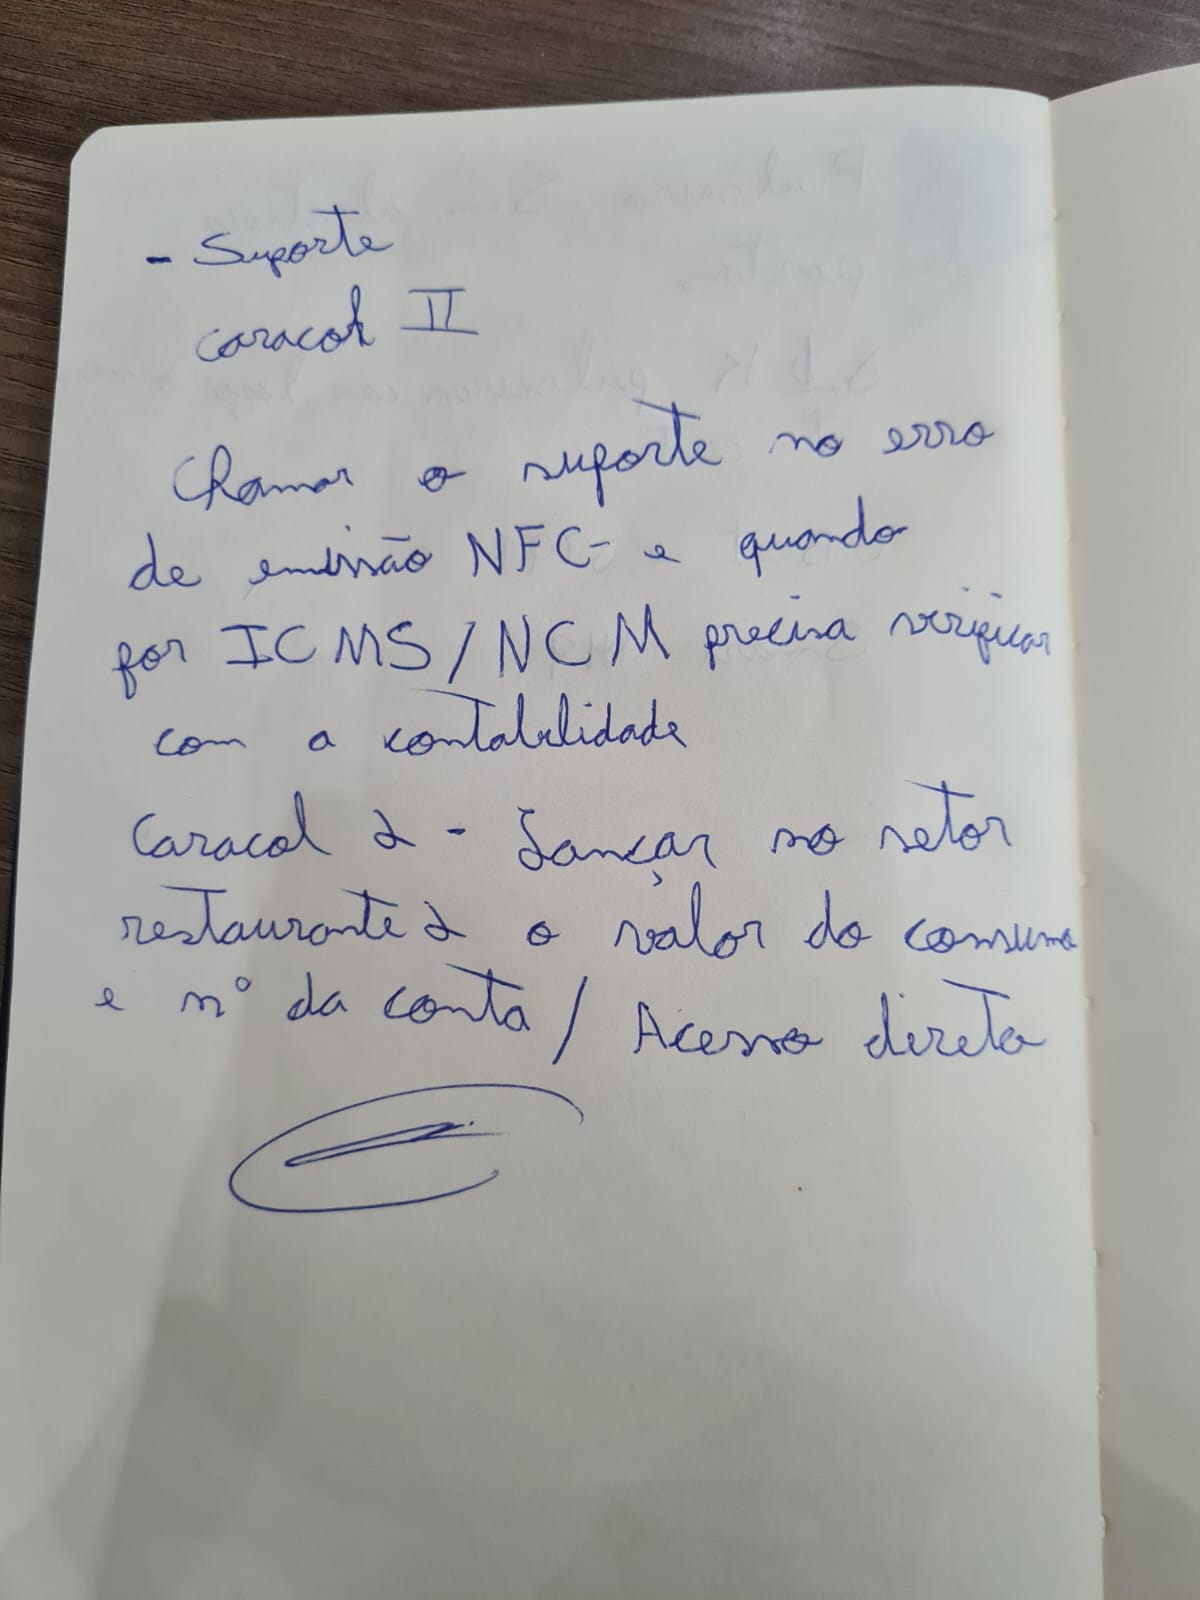 - Suporte
Caracol II
Chamar o suporte no erro
de emissão NFC-e quando
for ICMS/NCM precisa verificar
com a contabilidade
Caracol 2 - Lançar no setor
restaurante 2 o valor do consumo
e nº da conta / Acesso direto